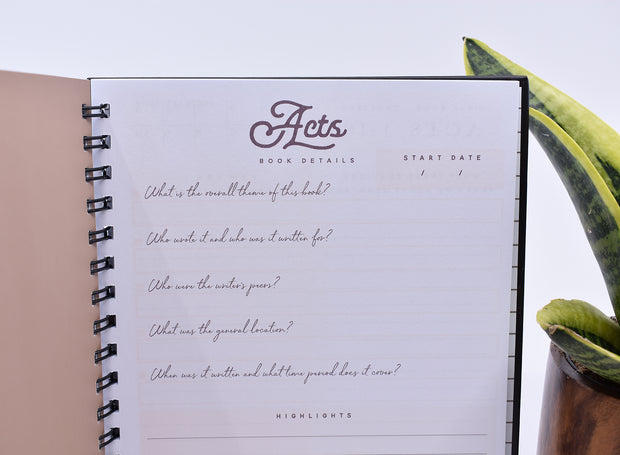 Acts
BOOK DETAILS
START DATE
/ /
What is the overall theme of this book?
Who wrote it and who was it written for?
Who were the writer's peers?
What was the general location?
When was it written and what time period does it cover?
HIGHLIGHTS